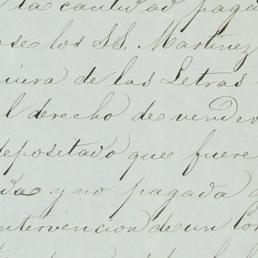 la cantidad paga
se los SS. Martinez
uiera de las Letras
l derecho de vender
depositado que fuere
da y no pagada
ntervencion de un Cor